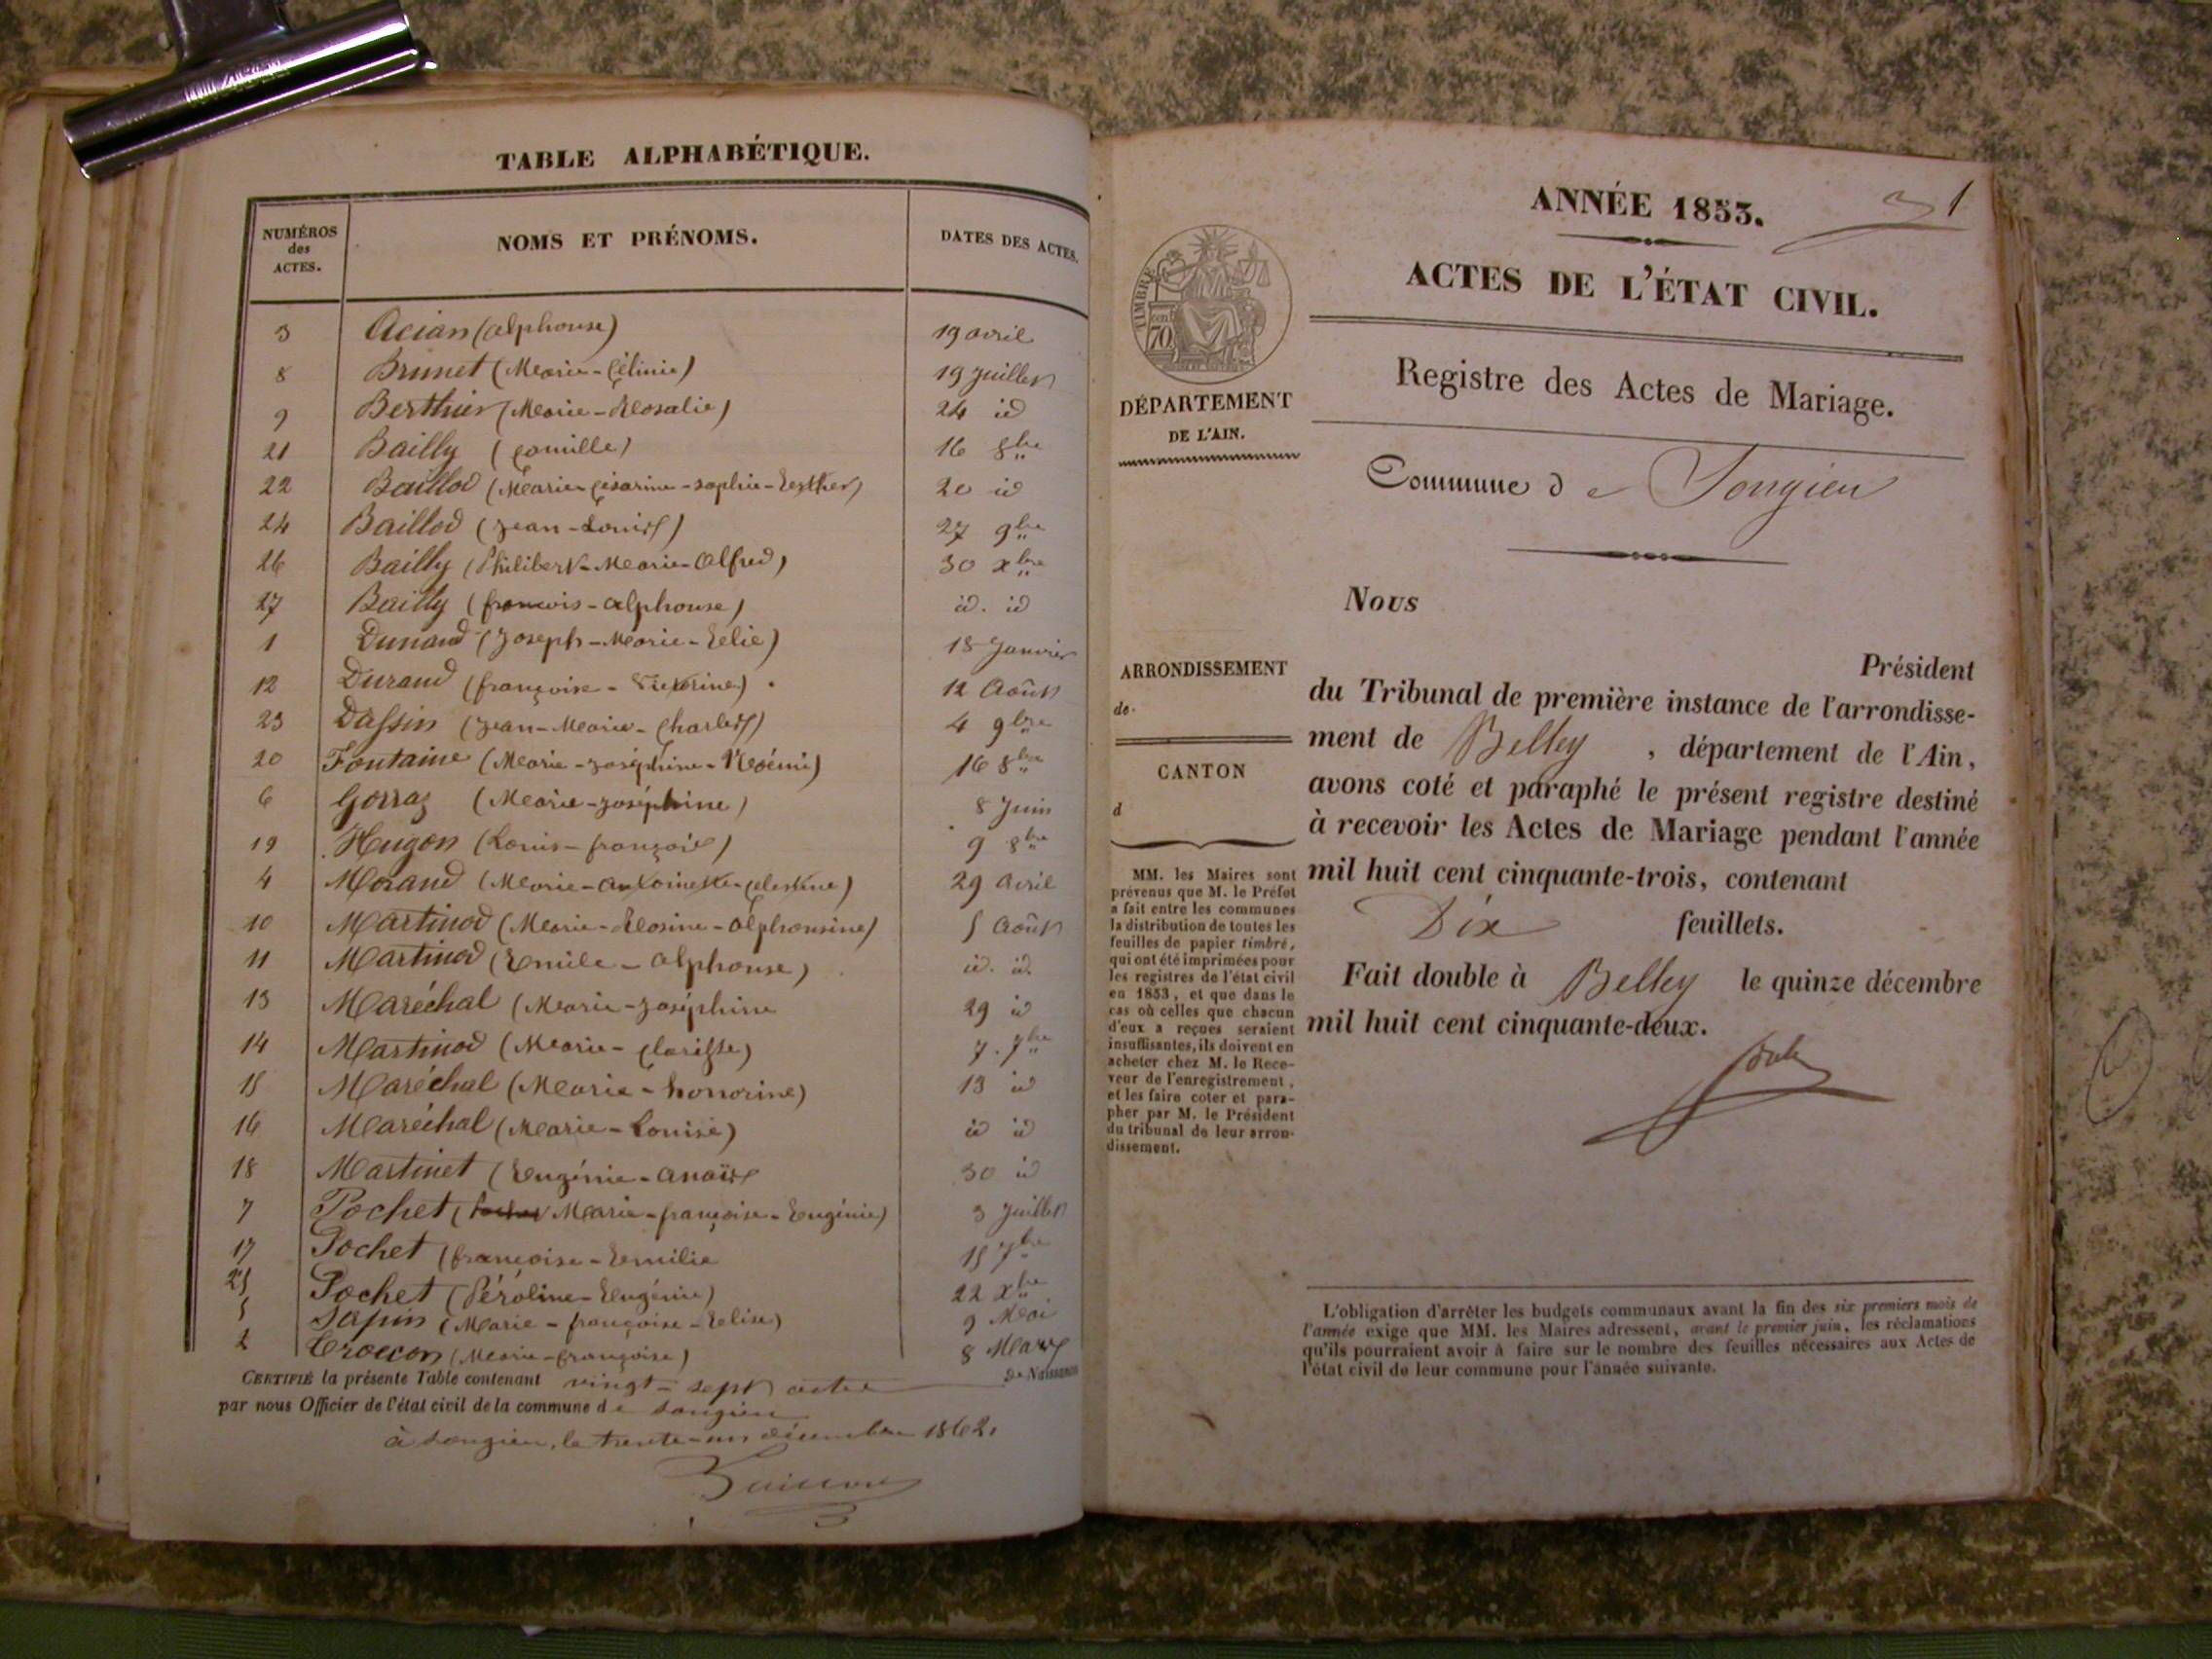 TABLE ALPHABÉTIQUE.
NUMÉROS des ACTES. NOMS ET PRÉNOMS. DATES DES ACTES.
3 Acian (alphonse) 19 avril
8 Brunet (Marie-Célinie) 19 Juillet
9 Berthier (Marie-Rosalie) 24 id
21 Bailly (Camille) 16 8bre
22 Baillod (Marie-Césarine-sophie-Esther) 20 id
24 Baillod (Jean-Louis) 27 9bre
26 Bailly (Philibert-Marie-Alfred) 30 xbre
27 Bailly (francois-alphonse) id. id
1 Dunand (Joseph-Marie-Elie) 18 Janvier
12 Durand (françoise-Victorine) 12 Août
23 Dassin (Jean-Marie-Charles) 4 9bre
20 Fontaine (Marie-Joséphine-Noémi) 16 8bre
6 Gorraz (Marie-Joséphine) 8 Juin
19 Hugon (Louis-françois) 9 8bre
4 Morand (Marie-antoinette-célestine) 29 avril
10 Martinod (Marie-Rosine-alphonsine) 5 Août
11 Martinod (Emile-alphonse) id. id.
13 Maréchal (Marie-Joséphine 29 id
14 Martinod (Marie-Clarisse) 7. 7bre
15 Maréchal (Marie-honnorine) 13 id
16 Maréchal (Marie-Louise) id id
18 Martinet (Eugénie-anaïs 30 id
7 Pochet (Marie-françoise-Eugénie) 3 Juillet
17 Pochet (françoise-Emilie 15 7bre
25 Pochet (Péroline-Eugénie) 22 xbre
5 Sapin (Marie-françoise-Elise) 9 Mai
2 Troccon (Marie-françoise) 8 Mars
CERTIFIÉ la présente Table contenant vingt-sept actes de Naissance
par nous Officier de l'état civil de la commune de Songieu
à Songieu, le trente-un décembre 1862.
1
ANNÉE 1853.
ACTES DE L'ÉTAT CIVIL.
Registre des Actes de Mariage.
Commune de Songieu
TIMBRE
70
DÉPARTEMENT
DE L'AIN.
ARRONDISSEMENT
de
CANTON
d
MM. les Maires sont
prévenus que M. le Préfet
a fait entre les communes
la distribution de toutes les
feuilles de papier timbré,
qui ont été imprimées pour
les registres de l'état civil
en 1853, et que dans le
cas où celles que chacun
d'eux a reçues seraient
insuffisantes, ils doivent en
acheter chez M. le Rece-
veur de l'enregistrement,
et les faire coter et para-
pher par M. le Président
du tribunal de leur arron-
dissement.
Nous
Président
du Tribunal de première instance de l'arrondisse-
ment de Belley, département de l'Ain,
avons coté et paraphé le présent registre destiné
à recevoir les Actes de Mariage pendant l'année
mil huit cent cinquante-trois, contenant
Dix feuillets.
Fait double à Belley le quinze décembre
mil huit cent cinquante-deux.
L'obligation d'arrêter les budgets communaux avant la fin des six premiers mois de
l'année exige que MM. les Maires adressent, avant le premier juin, les réclamations
qu'ils pourraient avoir à faire sur le nombre des feuilles nécessaires aux Actes de
l'état civil de leur commune pour l'année suivante.